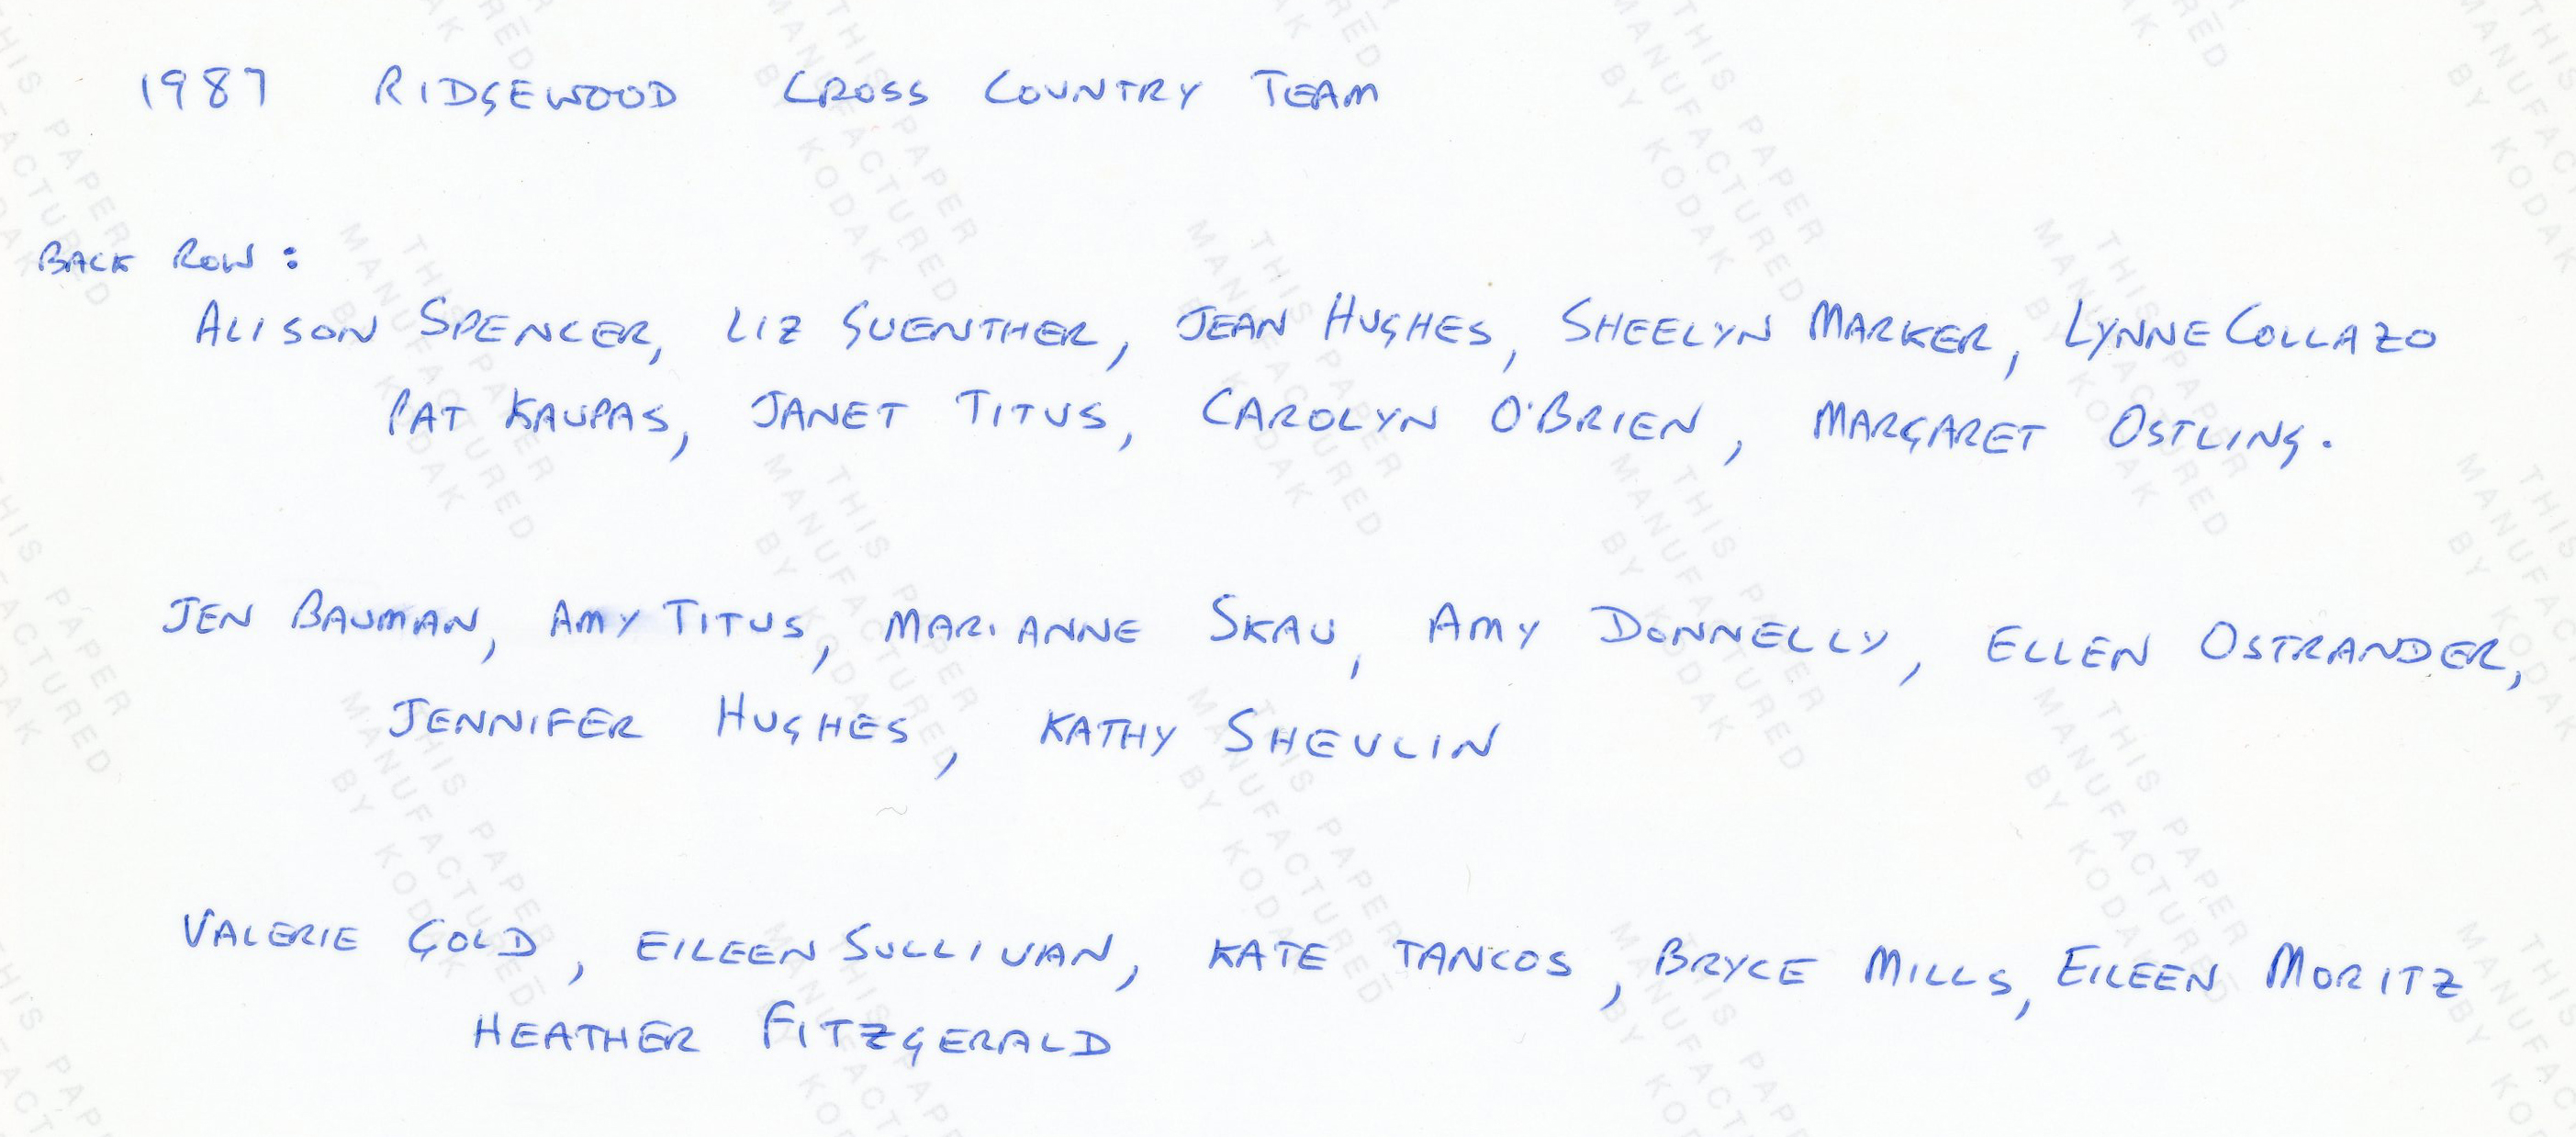 1987 RIDGEWOOD CROSS COUNTRY TEAM
BACK ROW:
ALISON SPENCER, LIZ GUENTHER, JEAN HUGHES, SHEELYN MARKER, LYNNE COLLAZO
PAT KAUPAS, JANET TITUS, CAROLYN O'BRIEN, MARGARET OSTLING.
JEN BAUMAN, AMY TITUS, MARIANNE SKAU, AMY DONNELLY, ELLEN OSTRANDER,
JENNIFER HUGHES, KATHY SHEVLIN
VALERIE GOLD, EILEEN SULLIVAN, KATE TANCOS, BRYCE MILLS, EILEEN MORITZ
HEATHER FITZGERALD
THIS PAPER
MANUFACTURED
BY KODAK